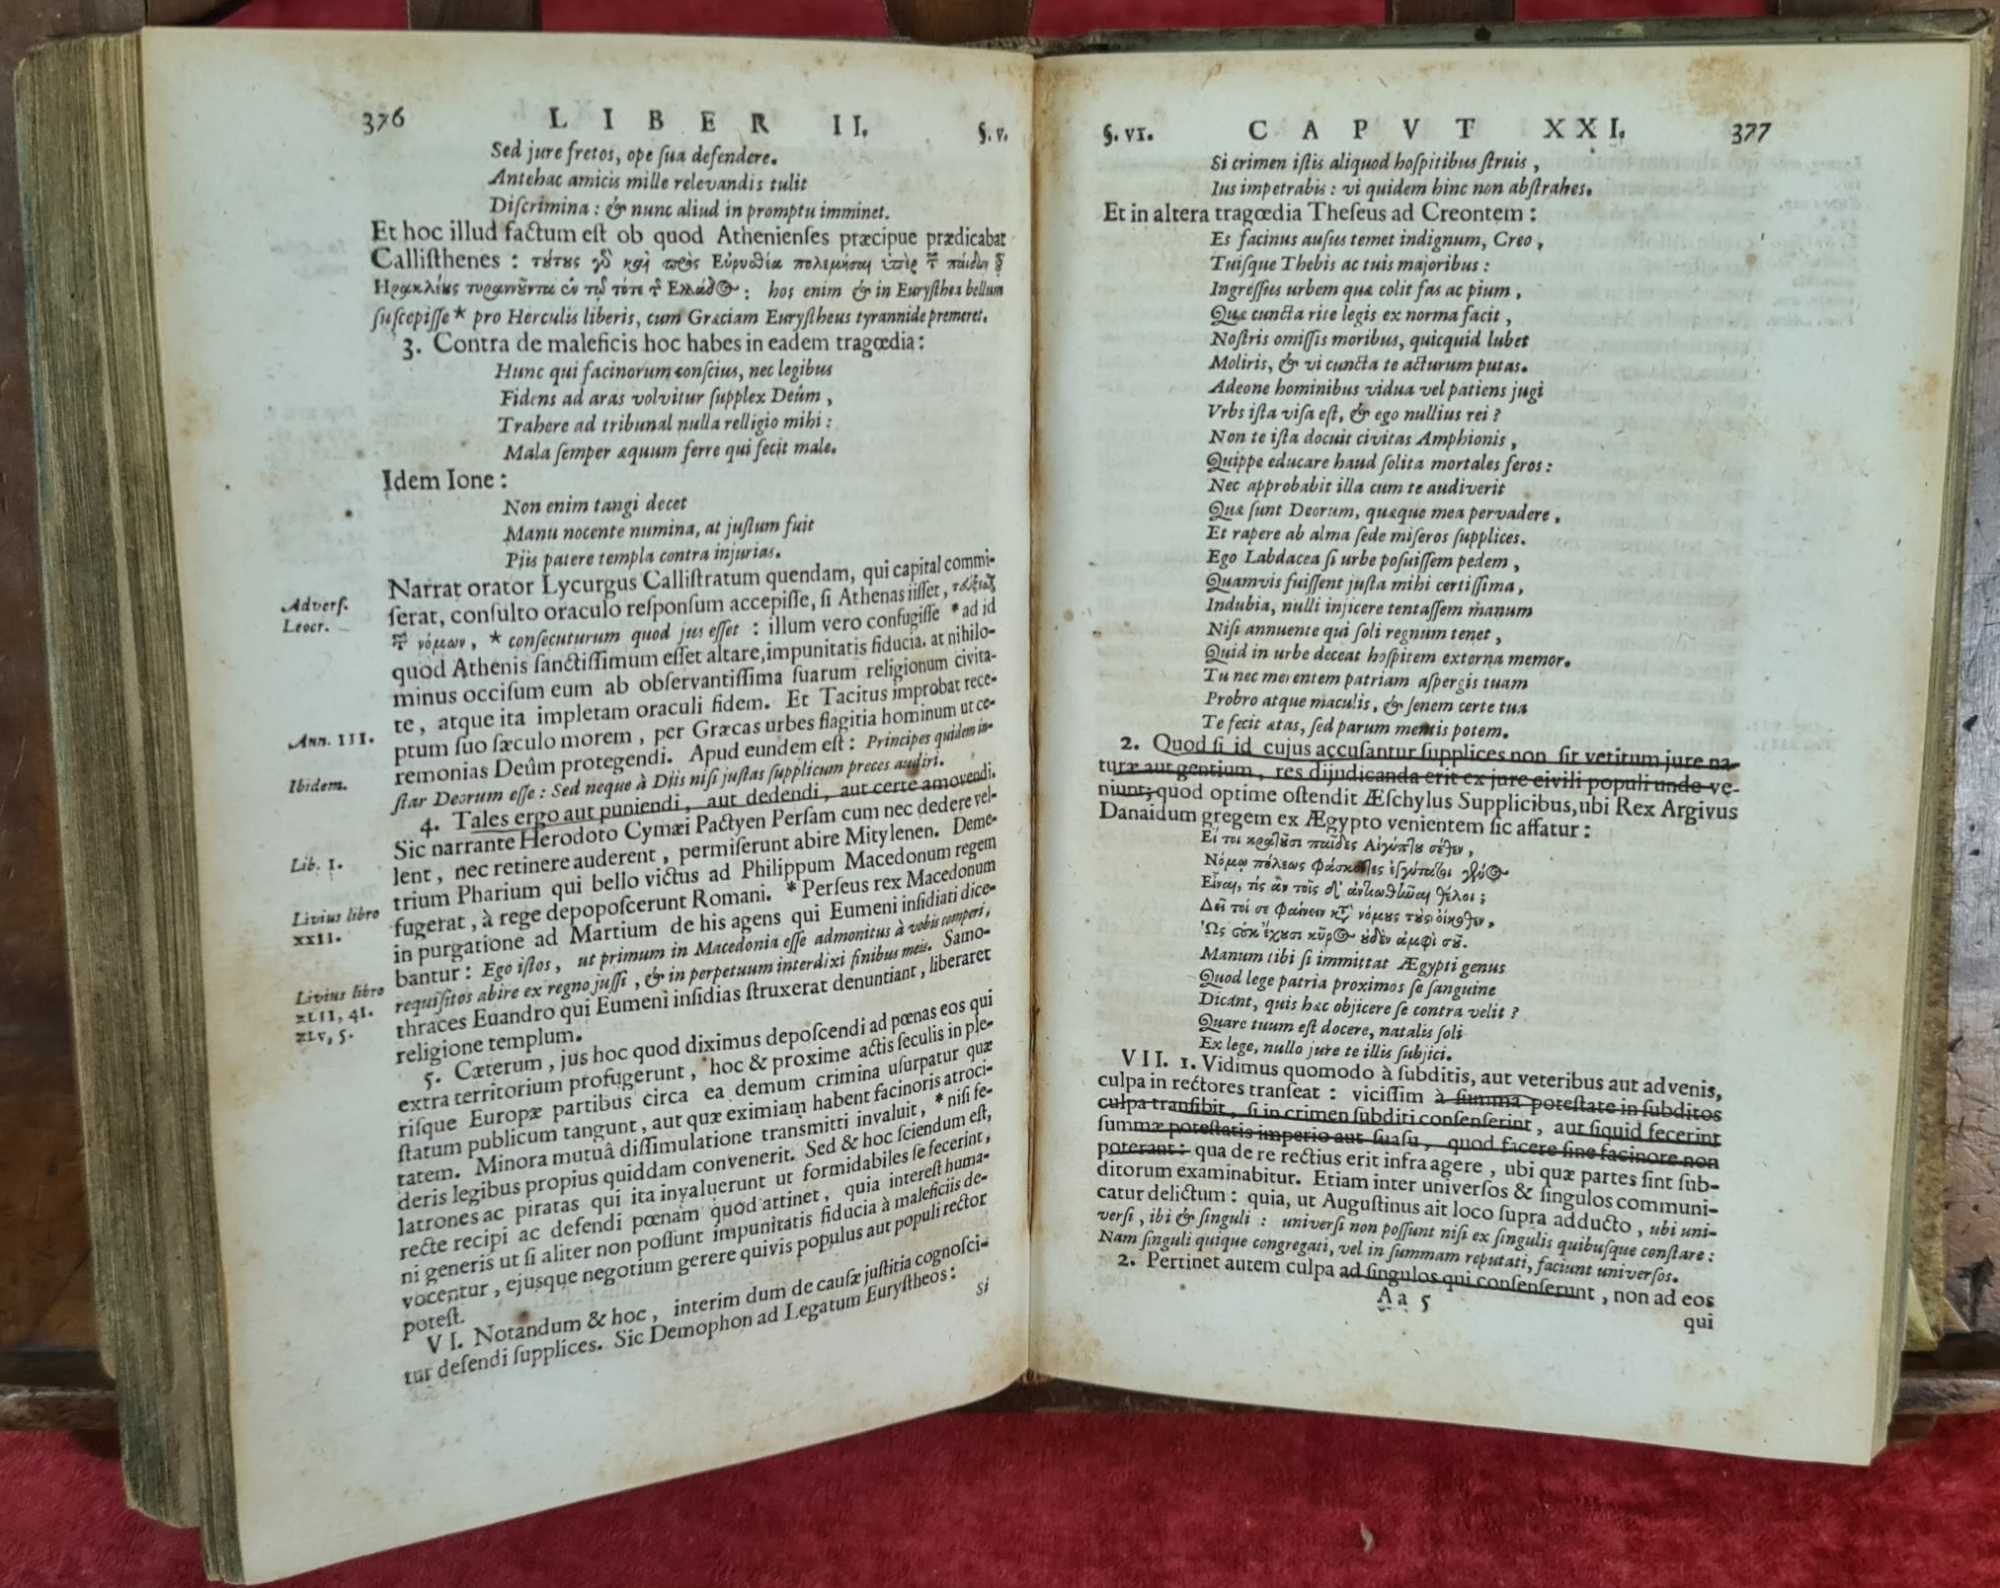 376 LIBER II. §. V.
Sed jure fretos, ope sua defendere.
Antehac amicis mille relevandis tulit
Discrimina: & nunc aliud in promptu imminet.
Et hoc illud factum est ob quod Athenienses præcipue prædicabat
Callisthenes :
hos enim & in Eurysthea bellum
suscepisse * pro Herculis liberis, cum Græciam Eurystheus tyrannide premeret.
3. Contra de maleficis hoc habes in eadem tragœdia:
Hunc qui facinorum conscius, nec legibus
Fidens ad aras volvitur supplex Deûm,
Trahere ad tribunal nulla relligio mihi:
Mala semper æquum ferre qui fecit male.
Idem Ione:
Non enim tangi decet
Manu nocente numina, at justum fuit
Piis patere templa contra injurias.
Narrat orator Lycurgus Callistratum quendam, qui capital commi-
Advers. Leocr.
serat, consulto oraculo responsum accepisse, si Athenas iisset,
νόμων, * consecuturum quod jus esset : illum vero confugisse * ad id
quod Athenis sanctissimum esset altare, impunitatis fiducia. at nihilo-
minus occisum eum ab observantissima suarum religionum civita-
te, atque ita impletam oraculi fidem. Et Tacitus improbat rece-
Ann. III.
ptum suo sæculo morem, per Græcas urbes flagitia hominum ut ce-
remonias Deûm protegendi. Apud eundem est: Principes quidem in-
Ibidem.
star Deorum esse: Sed neque à Diis nisi justas supplicum preces audiri.
4. Tales ergo aut puniendi, aut dedendi, aut certe amovendi.
Sic narrante Herodoto Cymæi Pactyen Persam cum nec dedere vel-
Lib. I.
lent, nec retinere auderent, permiserunt abire Mitylenen. Deme-
trium Pharium qui bello victus ad Philippum Macedonum regem
Livius libro XXII.
fugerat, à rege depoposcerunt Romani. * Perseus rex Macedonum
in purgatione ad Martium de his agens qui Eumeni insidiati dice-
bantur: Ego istos, ut primum in Macedonia esse admonitus à vobis comperi,
Livius libro XLII, 41. XLV, 5.
requisitos abire ex regno jussi, & in perpetuum interdixi finibus meis. Samo-
thraces Euandro qui Eumeni insidias struxerat denuntiant, liberaret
religione templum.
5. Cæterum, jus hoc quod diximus deposcendi ad pœnas eos qui
extra territorium profugerunt, * hoc & proxime actis seculis in ple-
risque Europæ partibus circa ea demum crimina usurpatur quæ
statum publicum tangunt, aut quæ eximiam habent facinoris atroci-
tatem. Minora mutuâ dissimulatione transmitti invaluit, * nisi fe-
deris legibus propius quiddam convenerit. Sed & hoc sciendum est,
latrones ac piratas qui ita invaluerunt ut formidabiles se fecerint,
recte recipi ac defendi pœnam quod attinet, quia interest huma-
ni generis ut si aliter non possunt impunitatis fiducia à maleficiis de-
vocentur, ejusque negotium gerere quivis populus aut populi rector
potest.
VI. Notandum & hoc, interim dum de causæ justitia cognosci-
tur defendi supplices. Sic Demophon ad Legatum Eurystheos:
si
§. VI. CAPVT XXI. 377
Si crimen istis aliquod hospitibus struis,
Ius impetrabis: vi quidem hinc non abstrahes.
Et in altera tragœdia Theseus ad Creontem:
Es facinus ausus temet indignum, Creo,
Tuisque Thebis ac tuis majoribus:
Ingressus urbem quæ colit fas ac pium,
Quæ cuncta rite legis ex norma facit,
Nostris omissis moribus, quicquid lubet
Moliris, & vi cuncta te acturum putas.
Adeone hominibus vidua vel patiens jugi
Vrbs ista visa est, & ego nullius rei?
Non te ista docuit civitas Amphionis,
Quippe educare haud solita mortales feros:
Nec approbabit illa cum te audiverit
Quæ sunt Deorum, quæque mea pervadere,
Et rapere ab alma sede miseros supplices.
Ego Labdacea si urbe posuissem pedem,
Quamvis fuissent justa mihi certissima,
Indubia, nulli injicere tentassem manum
Nisi annuente qui soli regnum tenet,
Quid in urbe deceat hospitem externa memor.
Tu nec merentem patriam aspergis tuam
Probro atque maculis, & senem certe tua
Te fecit ætas, sed parum mentis potem.
2. Quod si id cujus accusantur supplices non sit vetitum jure na-
turæ aut gentium, res dijudicanda erit ex jure civili populi unde ve-
niunt; quod optime ostendit Æschylus Supplicibus, ubi Rex Argivus
Danaidum gregem ex Ægypto venientem sic affatur:
Εἴ τοι κρατοῦσι παῖδες Αἰγύπτου σέθεν,
Νόμῳ πόλεως φάσκοντες
Εἶναι, τίς ἂν τοῖς θέλοι;
Δεῖ τοί σε φαίνειν νόμους τοὺς οἴκοθεν,
Ὡς οὐκ ἔχουσι κῦρος οὐδὲν ἀμφὶ σοῦ.
Manum tibi si immittat Ægypti genus
Quod lege patria proximos se sanguine
Dicant, quis hæc objicere se contra velit?
Quare tuum est docere, natalis soli
Ex lege, nullo jure te illis subjici.
VII. 1. Vidimus quomodo à subditis, aut veteribus aut advenis,
culpa in rectores transeat: vicissim à summa potestate in subditos
culpa transibit, si in crimen subditi consenserint, aut siquid fecerint
summæ potestatis imperio aut suasu, quod facere sine facinore non
poterant: qua de re rectius erit infra agere, ubi quæ partes sint sub-
ditorum examinabitur. Etiam inter universos & singulos communi-
catur delictum: quia, ut Augustinus ait loco supra adducto, ubi uni-
versi, ibi & singuli: universi non possunt nisi ex singulis quibusque constare:
Nam singuli quique congregati, vel in summam reputati, faciunt universos.
2. Pertinet autem culpa ad singulos qui consenserunt, non ad eos
Aa 5
qui